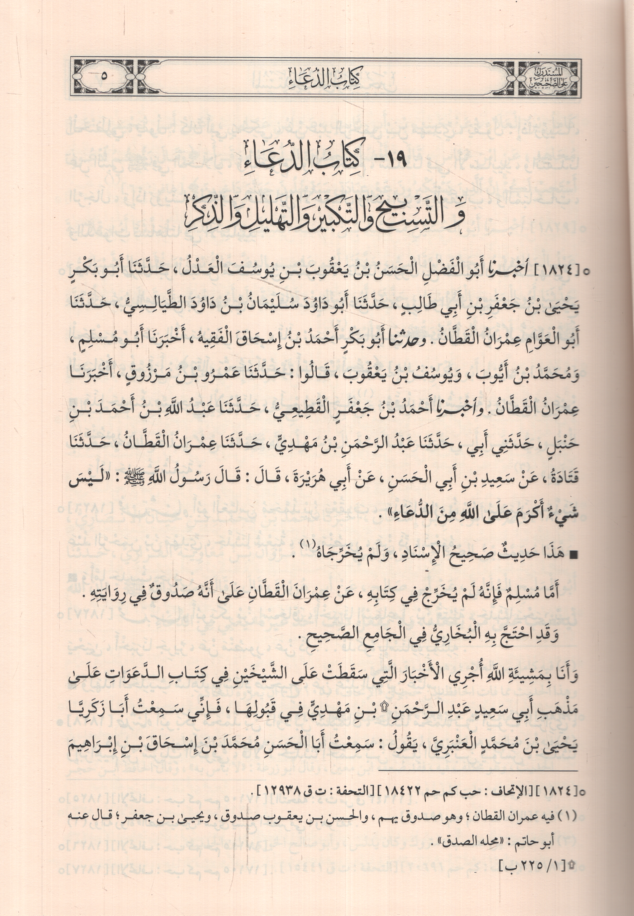 المستدرك على الصحيحين
كتاب الدعاء
٥
١٩- كتاب الدعاء
والتسبيح والتكبير والتهليل والذكر
[١٨٢٤] أخبرنا أَبُو الْفَضْلِ الْحَسَنُ بْنُ يَعْقُوبَ بْنِ يُوسُفَ الْعَدْلُ، حَدَّثَنَا أَبُو بَكْرٍ
يَحْيَىٰ بْنُ جَعْفَرِ بْنِ أَبِي طَالِبٍ، حَدَّثَنَا أَبُو دَاوُدَ سُلَيْمَانُ بْنُ دَاوُدَ الطَّيَالِسِيُّ، حَدَّثَنَا
أَبُو الْعَوَّامِ عِمْرَانُ الْقَطَّانُ. وحدثنا أَبُو بَكْرٍ أَحْمَدُ بْنُ إِسْحَاقَ الْفَقِيهُ، أَخْبَرَنَا أَبُو مُسْلِمٍ،
وَمُحَمَّدُ بْنُ أَيُّوبَ، وَيُوسُفُ بْنُ يَعْقُوبَ، قَالُوا: حَدَّثَنَا عَمْرُو بْنُ مَرْزُوقٍ، أَخْبَرَنَا
عِمْرَانُ الْقَطَّانُ. وأخبرنا أَحْمَدُ بْنُ جَعْفَرٍ الْقَطِيعِيُّ، حَدَّثَنَا عَبْدُ اللَّهِ بْنُ أَحْمَدَ بْنِ
حَنْبَلٍ، حَدَّثَنِي أَبِي، حَدَّثَنَا عَبْدُ الرَّحْمَنِ بْنُ مَهْدِيٍّ، حَدَّثَنَا عِمْرَانُ الْقَطَّانُ، حَدَّثَنَا
قَتَادَةُ، عَنْ سَعِيدِ بْنِ أَبِي الْحَسَنِ، عَنْ أَبِي هُرَيْرَةَ، قَالَ: قَالَ رَسُولُ اللَّهِ ﷺ: «لَيْسَ
شَيْءٌ أَكْرَمَ عَلَىٰ اللَّهِ مِنَ الدُّعَاءِ».
■ هَذَا حَدِيثٌ صَحِيحُ الْإِسْنَادِ، وَلَمْ يُخَرِّجَاهُ(١).
أَمَّا مُسْلِمٌ فَإِنَّهُ لَمْ يُخَرِّجْ فِي كِتَابِهِ، عَنْ عِمْرَانَ الْقَطَّانِ عَلَىٰ أَنَّهُ صَدُوقٌ فِي رِوَايَتِهِ.
وَقَدِ احْتَجَّ بِهِ الْبُخَارِيُّ فِي الْجَامِعِ الصَّحِيحِ.
وَأَنَا بِمَشِيئَةِ اللَّهِ أُجْرِي الْأَخْبَارَ الَّتِي سَقَطَتْ عَلَىٰ الشَّيْخَيْنِ فِي كِتَابِ الدَّعَوَاتِ عَلَىٰ
مَذْهَبِ أَبِي سَعِيدٍ عَبْدِ الرَّحْمَنِ ۩ بْنِ مَهْدِيٍّ فِي قَبُولِهَا، فَإِنِّي سَمِعْتُ أَبَا زَكَرِيَّا
يَحْيَىٰ بْنَ مُحَمَّدٍ الْعَنْبَرِيَّ، يَقُولُ: سَمِعْتُ أَبَا الْحَسَنِ مُحَمَّدَ بْنَ إِسْحَاقَ بْنِ إِبْرَاهِيمَ
[١٨٢٤] [الإتحاف: حب كم حم ١٨٤٢٢] [التحفة: ت ق ١٢٩٣٨].
(١) فيه عمران القطان؛ وهو صدوق يهم، والحسن بن يعقوب صدوق، ويحيى بن جعفر؛ قال عنه
أبو حاتم: «محله الصدق».
۩ [١/ ٢٢٥ ب]